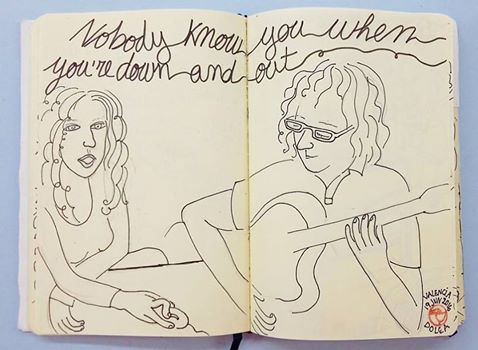 Nobody know you when
you're down and out
VALENCIA
19 JUN 2016
DOLGA